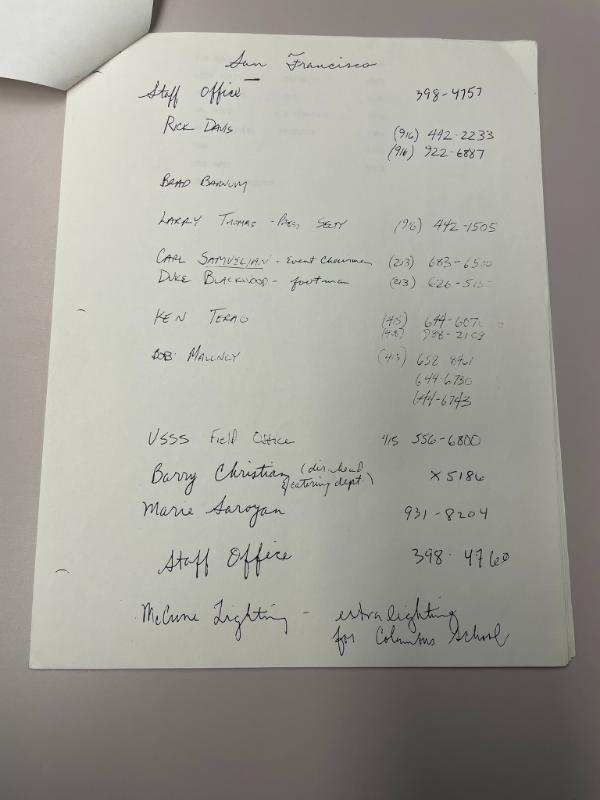 San Francisco
Staff Office 398-4757
RICK DAVIS (916) 442-2233
(916) 922-6887
BRAD BARNUM
LARRY THOMAS - PRESS (916) 442-1505
CARL SAMUELIAN - Event Chairman (213) 683-6500
DUKE BLACKWOOD - footman (213) 626-
KEN TERAO (415) 644-607
988-2109
BOB MALONEY (415) 658 8461
644-6730
644-6743
USSS Field Office 415 556-6800
Barry Christian (dir. head X5186
of catering dept)
Marie Saroyan 931-8204
Staff Office 398-4760
McCune Lighting - extra lighting
for Columbus School